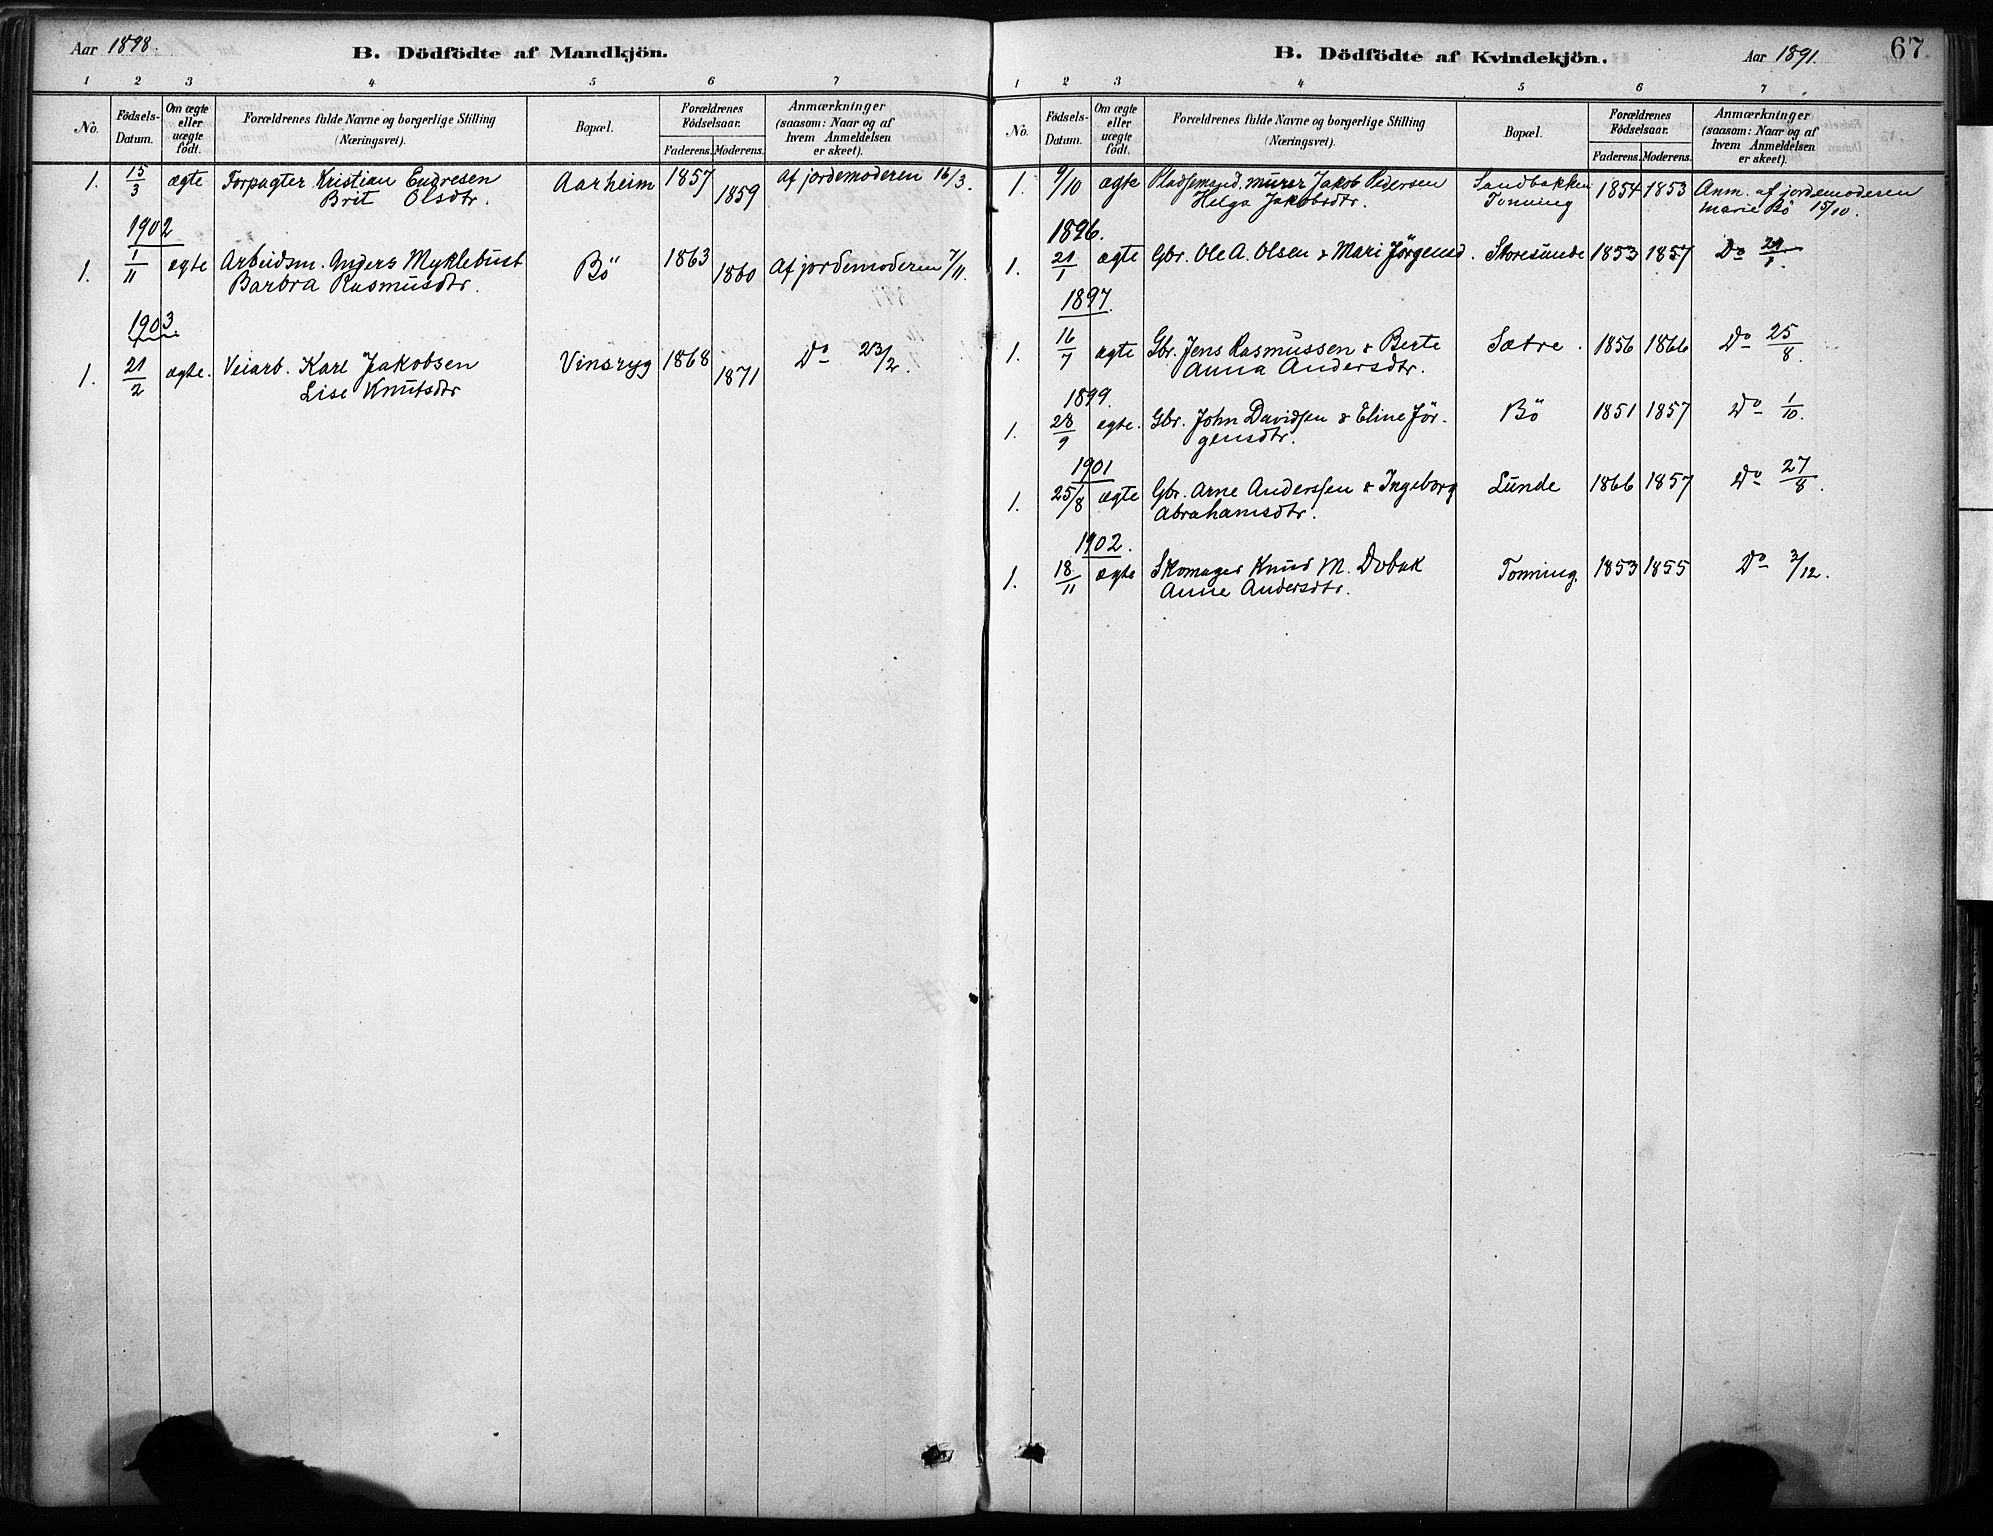 Aar 1898.
B. Dödfödte af Mandkjön.
1 2 3 4 5 6 7
No.
Födsels-Datum.
Om ægte eller uægte födt.
Forældrenes fulde Navne og borgerlige Stilling
(Næringsvei).
Bopæl.
Forældrenes Födselsaar.
Faderens. Moderens.
Anmærkninger
(saasom: Naar og af
hvem Anmeldelsen
er skeet).
1. 15/3 ægte Forpagter Kristian Endresen Aarheim 1857 1859 Af jordemoderen 16/3.
Brit Olsdtr.
1902
1. 1/11 ægte Arbeidsm. Anders Myklebust Bö 1863 1860 Af jordemoderen 7/11.
Barbra Rasmusdtr.
1903
1. 21/2 ægte. Veiarb. Karl Jakobsen Vinsryg 1868 1871 Do 23/2.
Lise Knutsdtr
B. Dödfödte af Kvindekjön.
Aar 1891.
67
1 2 3 4 5 6 7
No.
Födsels-Datum.
Om ægte eller uægte födt.
Forældrenes fulde Navne og borgerlige Stilling
(Næringsvei).
Bopæl.
Forældrenes Födselsaar.
Faderens. Moderens.
Anmærkninger
(saasom: Naar og af
hvem Anmeldelsen
er skeet).
1. 9/10 ægte Pladsemand, murer Jakob Pedersen Sandbakken 1854 1853 Anm. af jordemoderen
Helga Jakobsdtr. Tonning Marie Bö 15/10.
1896.
1. 21/1 ægte Gbr. Ole A. Olsen & Mari Jörgensd. Storesunde 1853 1857 Do 21/1.
1897.
1. 16/7 ægte Gbr. Jens Rasmussen & Berte Sætre. 1856 1866 Do 25/8.
Anna Andersdtr.
1899.
1. 28/9 ægte. Gbr. John Davidsen & Eline Jör- Bö 1851 1857 Do 1/10.
gensdtr.
1901
1. 25/8 ægte Gbr. Arne Anderssen & Ingeborg Lunde 1866 1857 Do 27/8.
Abrahamsdtr.
1902.
1. 18/11 ægte Skomager Knud M. Dobak Tonning. 1853 1855 Do 3/12.
Anne Andersdtr.